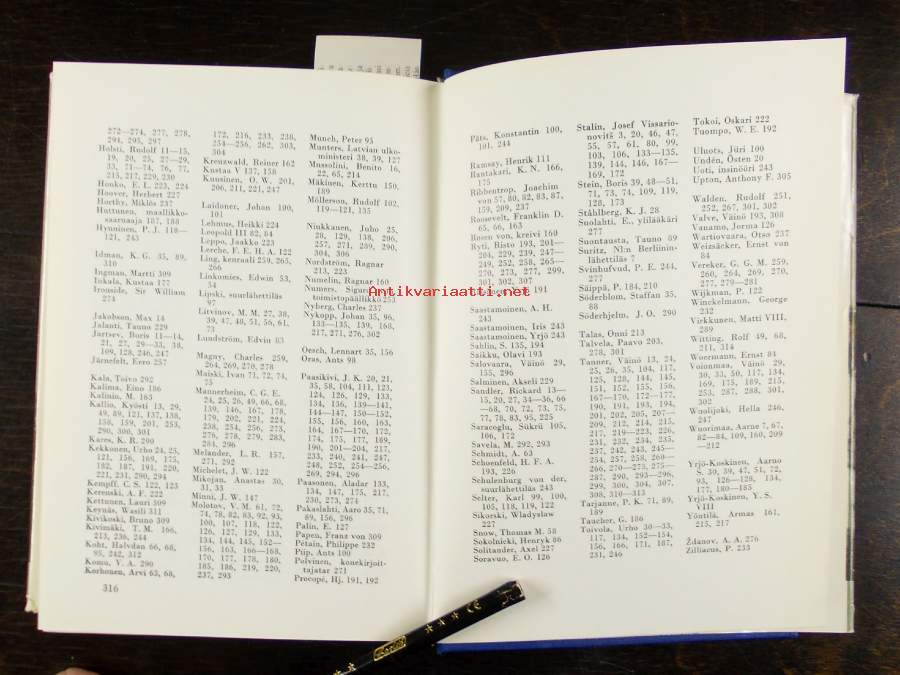 272—274, 277, 278,
294, 295, 297
Holsti, Rudolf 11—15,
19, 20, 25, 27—29,
33, 71—74, 76, 77,
215, 217, 229, 230
Honko, E. L. 223, 224
Hoover, Herbert 227
Horthy, Miklós 237
Huttunen, maallikko-
saarnaaja 187, 188
Hynninen, P. J. 118—
121, 243
Idman, K. G. 35, 89,
310
Ingman, Martti 309
Inkala, Kustaa 177
Ironside, Sir William
274
Jakobson, Max 14
Jalanti, Tauno 229
Jartsev, Boris 11—14,
21, 27, 29—33, 38,
109, 128, 246, 247
Järnefelt, Eero 257
Kala, Toivo 292
Kalima, Eino 186
Kalinin, M. 163
Kallio, Kyösti 13, 29,
49, 89, 121, 137, 138,
158, 159, 201, 253,
290, 300, 301
Kares, K. R. 290
Kekkonen, Urho 24, 25,
121, 156, 169, 175,
182, 187, 191, 220,
221, 231, 290, 294
Kempff, C. S. 122, 123
Kerenski, A. F. 222
Kettunen, Lauri 309
Keynäs, Wasili 311
Kivikoski, Bruno 309
Kivimäki, T. M. 166,
213, 236, 244
Koht, Halvdan 66, 68,
95, 242, 312
Komu, V. A. 290
Korhonen, Arvi 63, 68,
316
172, 216, 233, 238,
254—256, 262, 303,
304
Kreuzwald, Reiner 162
Kustaa V 137, 158
Kuusinen, O. W. 201,
206, 211, 221, 247
Laidoner, Johan 190,
101
Lehmus, Heikki 224
Leopold III 82, 84
Leppo, Jaakko 223
Lerche, F. E. H. A. 122
Ling, kenraali 259, 265,
266
Linkomies, Edwin 53,
54
Lipski, suurlähettiläs
97
Litvinov, M. M. 27, 38,
39, 47, 48, 51, 56, 61,
73
Lundström, Edvin 83
Magny, Charles 259,
264, 269, 270, 278
Maiski, Ivan 71, 72, 74,
75
Mannerheim, C. G. E.
24, 25, 26, 49, 66, 68,
139, 146, 167, 178,
179, 202, 221, 224,
238, 254, 256, 273,
276, 278, 279, 283,
284, 296
Melander, L. R. 157,
271, 292
Michelet, J. W. 122
Mikojan, Anastas 30,
31, 33
Minni, J. W. 147
Molotov, V. M. 61, 72,
74, 78, 82, 83, 92, 93,
100, 107, 118, 122,
126, 127, 129, 133,
134, 144, 145, 152—
156, 163, 166—168,
170, 177, 178, 180,
185, 186, 219, 220,
237, 293
Munch, Peter 95
Munters, Latvian ulko-
ministeri 38, 39, 127
Mussolini, Benito 16,
22, 65, 214
Mäkinen, Kerttu 150,
189
Möllerson, Rudolf 102,
119—121, 135
Niukkanen, Juho 25,
28, 129, 138, 206,
257, 271, 289, 290,
304, 306
Nordström, Ragnar
213, 223
Numelin, Ragnar 160
Numers, Sigurd von,
toimistopäällikkö 253
Nyberg, Charles 237
Nykopp, Johan 35, 96,
133—135, 139, 168,
217, 271, 276, 302
Oesch, Lennart 35, 156
Oras, Ants 98
Paasikivi, J. K. 20, 21,
35, 58, 104, 111, 123,
124, 126, 129, 133,
134, 136, 139—141,
144—147, 150—152,
155, 156, 160, 163,
164, 167—170, 172,
174, 175, 177, 189,
190, 201—204, 217,
233, 240, 241, 247,
248, 252, 254—256,
269, 294, 296
Paasonen, Aladar 133,
134, 147, 175, 217,
230, 273, 274
Pakaslahti, Aaro 35, 71,
89, 156, 296
Palin, E. 127
Papen, Franz von 309
Pétain, Philippe 232
Piip, Ants 100
Polvinen, konekirjoit-
tajatar 271
Procopé, Hj. 191, 192
Päts, Konstantin 100,
101, 244
Ramsay, Henrik 111
Rantakari, K. N. 166,
175
Ribbentrop, Joachim
von 57, 80, 82, 83, 87,
159, 209, 237
Roosevelt, Franklin D.
65, 66, 163
Rosen von, kreivi 160
Ryti, Risto 193, 201—
204, 229, 239, 247—
249, 252, 258, 265—
270, 273, 277, 299,
301, 302, 307
194
Saastamoinen, A. H.
243
Saastamoinen, Iris 243
Saastamoinen, Yrjö 243
Sahlin, S. 135, 194
Saikku, Olavi 193
Salovaara, Väinö 29,
155, 296
Salminen, Akseli 229
Sandler, Rickard 13—
15, 20, 27, 34—36, 66
—68, 70, 72, 73, 75,
77, 78, 83, 95, 225
Saracoglu, Sükrü 105,
106, 172
Savela, M. 292, 293
Schmidt, A. 63
Schoenfeld, H. F. A.
193, 226
Schulenburg von der,
suurlähettiläs 243
Selter, Karl 99, 100,
105, 118, 119, 122
Sikorski, Wladyslaw
227
Snow, Thomas M. 58
Sokolnicki, Henryk 86
Solitander, Axel 227
Soravuo, E. O. 126
Stalin, Josef Vissario-
novitš 3, 20, 46, 47,
55, 57, 61, 80, 99,
103, 106, 133—135,
139, 144, 146, 167—
169, 172
Stein, Boris 39, 48—51,
71, 73, 74, 109, 119,
128, 173
Ståhlberg, K. J. 28
Suolahti, E., ylilääkäri
277
Suontausta, Tauno 89
Suritz, Nl:n Berliinin-
lähettiläs 7
Svinhufvud, P. E. 244,
277
Säippä, P. 184, 210
Söderblom, Staffan 35,
88
Söderhjelm, J. O. 290
Talas, Onni 213
Talvela, Paavo 203,
278, 301
Tanner, Väinö 13, 24,
25, 26, 35, 104, 117,
125, 128, 144, 145,
151, 152, 155, 156,
167—170, 172—177,
190, 191, 193, 194,
201, 202, 205, 207—
209, 212, 214, 215,
217, 219—223, 226,
231, 232, 234, 235,
237, 242, 243, 245—
254, 257, 258, 260—
266, 270—273, 275—
287, 290, 295, 296,
300, 304, 307, 308,
310—313
Tarjanne, P. K. 71, 89,
189
Taucher, G. 186
Toivola, Urho 30—33,
117, 134, 152—154,
156, 166, 171, 187,
231, 246
Tokoi, Oskari 222
Tuompo, W. E. 192
Uluots, Jüri 100
Undén, Östen 20
Uoti, insinööri 243
Upton, Anthony F. 305
Walden, Rudolf 251,
252, 267, 301, 302
Valve, Väinö 193, 308
Vanamo, Jorma 126
Wartiovaara, Otso 237
Weizsäcker, Ernst von
84
Vereker, G. G. M. 259,
260, 264, 269, 270,
277, 279—281
Wijkman, P. 122
Winckelmann, George
232
Virkkunen, Matti VIII,
289
Witting, Rolf 49, 68,
211, 314
Woermann, Ernst 84
Voionmaa, Väinö 29,
30, 33, 50, 117, 134,
169, 175, 189, 215,
253, 287, 288, 301,
302
Wuolijoki, Hella 246,
247
Wuorimaa, Aarne 7, 67,
82—84, 109, 160, 209
—212
Yrjö-Koskinen, Aarno
S. 30, 39, 47, 51, 72,
93, 126—128, 134,
177, 180—185
Yrjö-Koskinen, Y. S.
VIII
Yöntilä, Armas 161,
215, 217
Ždanov, A. A. 276
Zilliacus, P. 233
Antikvariaatti.net